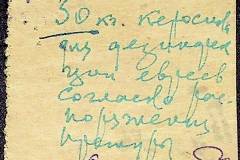 50 кг. керосина
для дезинфек
ции евреев
согласно рас-
поряжения